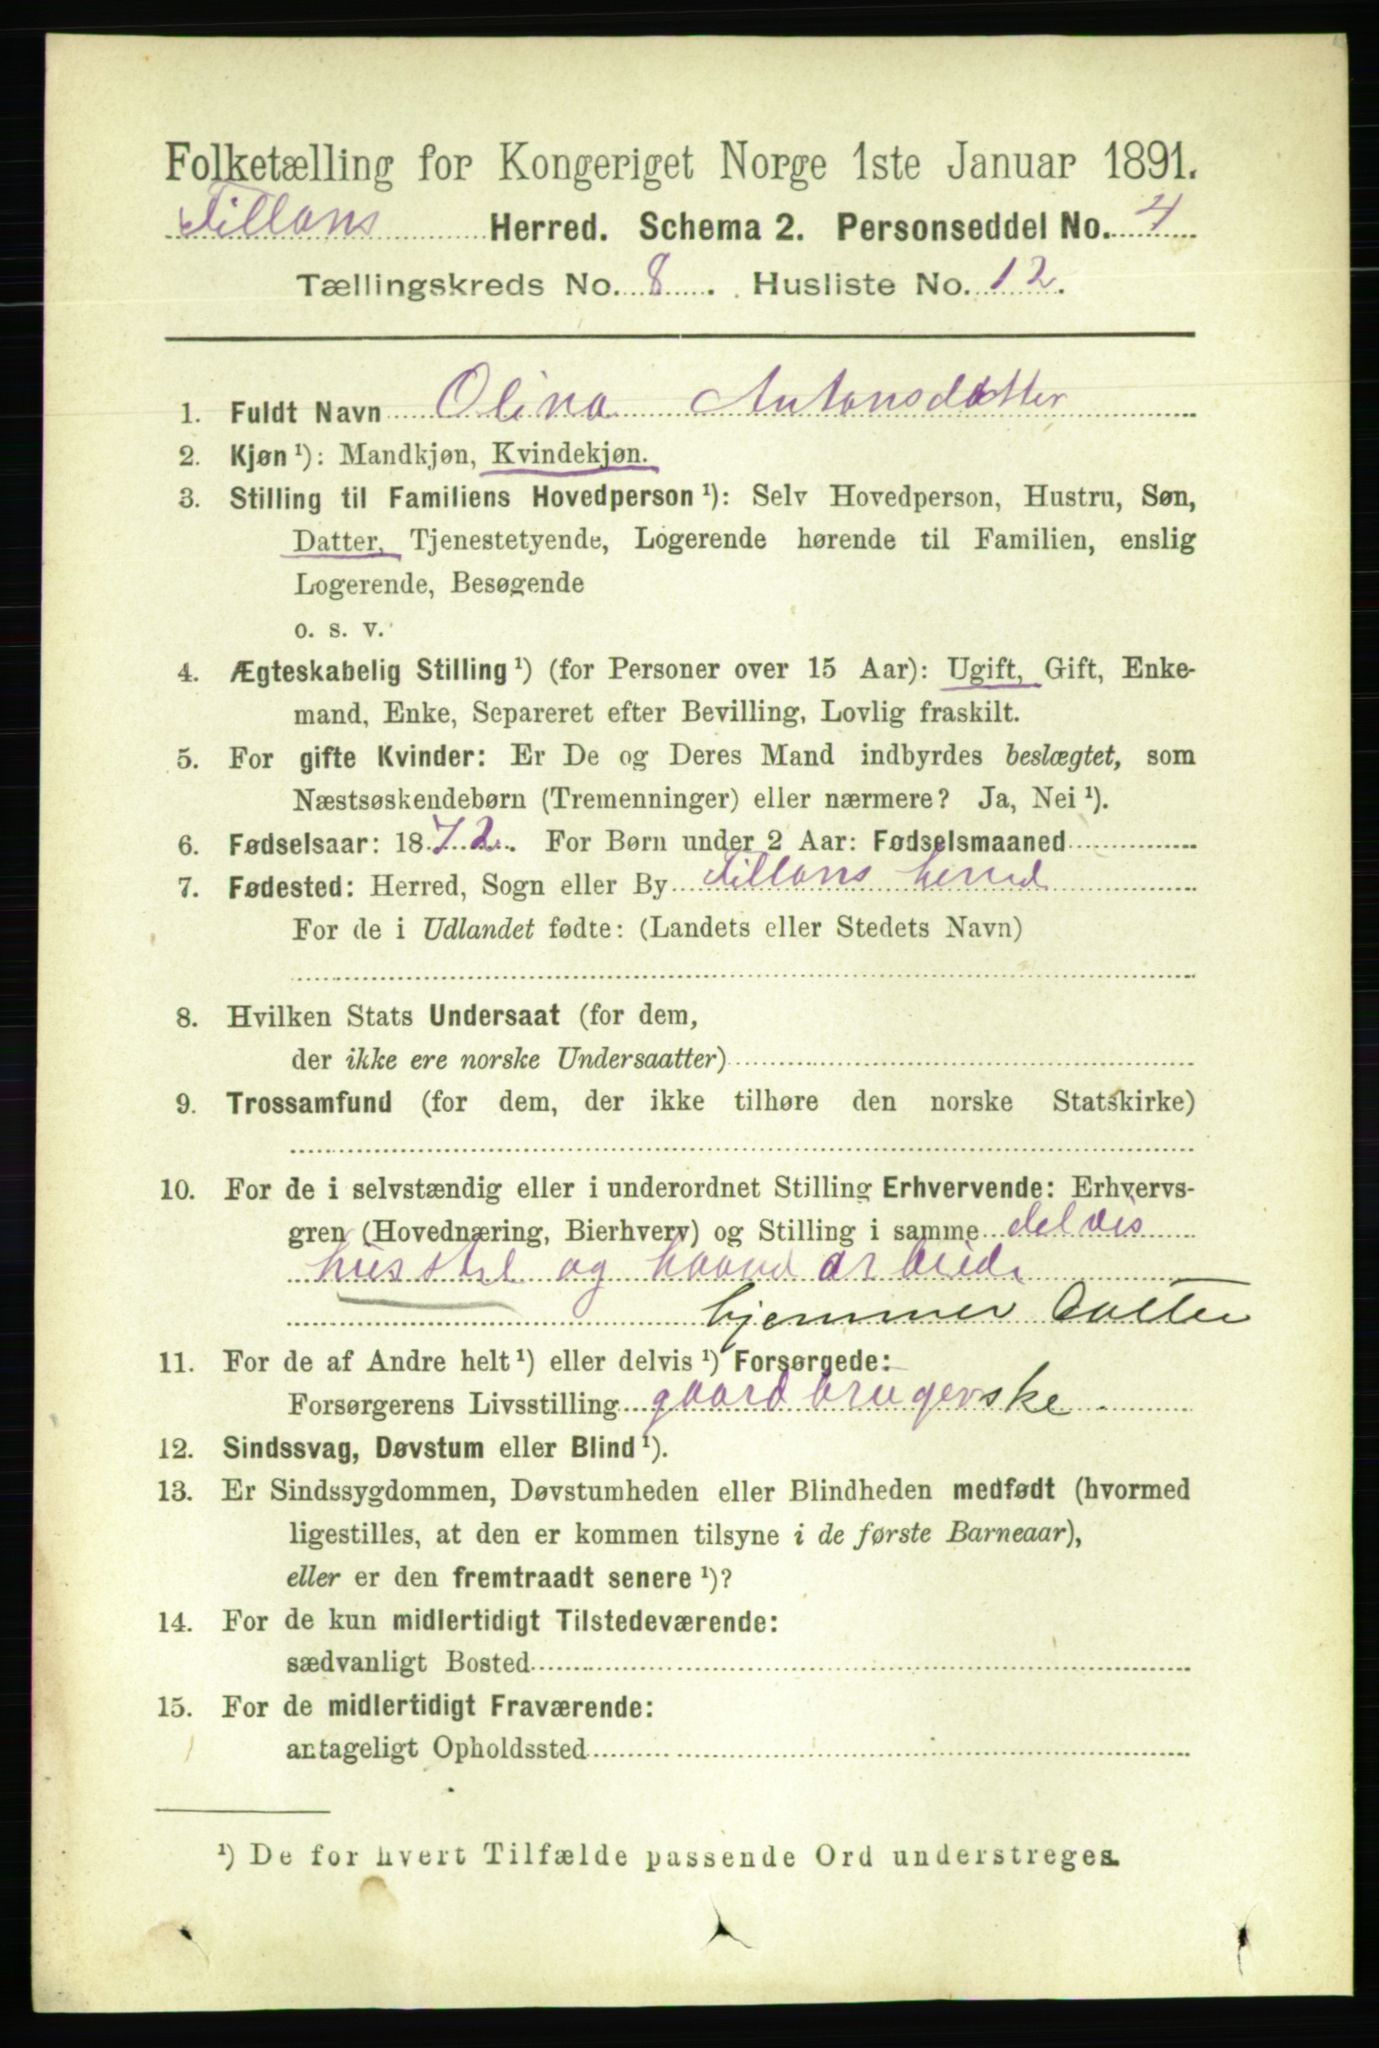 Folketælling for Kongeriget Norge 1ste Januar 1891.
Fillans Herred. Schema 2. Personseddel No. 4
Tællingskreds No. 8. Husliste No. 12.
1. Fuldt Navn Olina Antonsdatter
2. Kjøn¹): Mandkjøn, Kvindekjøn.
3. Stilling til Familiens Hovedperson¹): Selv Hovedperson, Hustru, Søn,
Datter, Tjenestetyende, Logerende hørende til Familien, enslig
Logerende, Besøgende
o. s. v.
4. Ægteskabelig Stilling¹) (for Personer over 15 Aar): Ugift, Gift, Enke-
mand, Enke, Separeret efter Bevilling, Lovlig fraskilt.
5. For gifte Kvinder: Er De og Deres Mand indbyrdes beslægtet, som
Næstsøskendebørn (Tremenninger) eller nærmere? Ja, Nei¹).
6. Fødselsaar: 1872. For Børn under 2 Aar: Fødselsmaaned
7. Fødested: Herred, Sogn eller By Fillans herred
For de i Udlandet fødte: (Landets eller Stedets Navn)
8. Hvilken Stats Undersaat (for dem,
der ikke ere norske Undersaatter)
9. Trossamfund (for dem, der ikke tilhøre den norske Statskirke)
10. For de i selvstændig eller i underordnet Stilling Erhvervende: Erhvervs-
gren (Hovednæring, Bierhverv) og Stilling i samme delvis
husstel og haand arbeide
hjemmev Datter
11. For de af Andre helt¹) eller delvis¹) Forsørgede:
Forsørgerens Livsstilling gaardbrugerske
12. Sindssvag, Døvstum eller Blind¹).
13. Er Sindssygdommen, Døvstumheden eller Blindheden medfødt (hvormed
ligestilles, at den er kommen tilsyne i de første Barneaar),
eller er den fremtraadt senere¹)?
14. For de kun midlertidigt Tilstedeværende:
sædvanligt Bosted
15. For de midlertidigt Fraværende:
antageligt Opholdssted
¹) De for hvert Tilfælde passende Ord understreges.